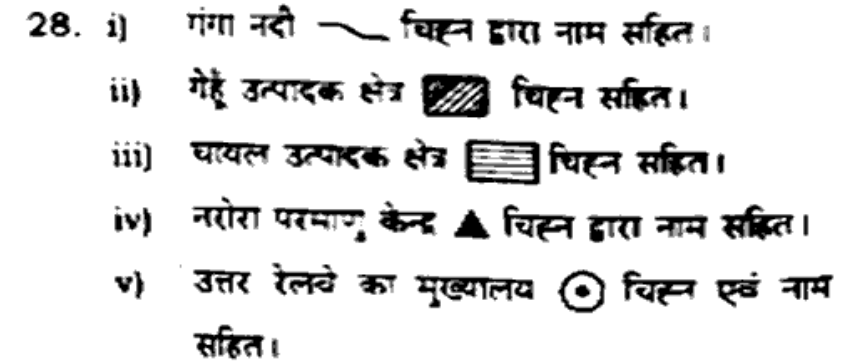 28. i) गंगा नदी चिह्न द्वारा नाम सहित।
ii) गेहूँ उत्पादक क्षेत्र चिह्न सहित।
iii) चावल उत्पादक क्षेत्र चिह्न सहित।
iv) नरोरा परमाणु केन्द्र ▲ चिह्न द्वारा नाम सहित।
v) उत्तर रेलवे का मुख्यालय चिह्न एवं नाम
सहित।